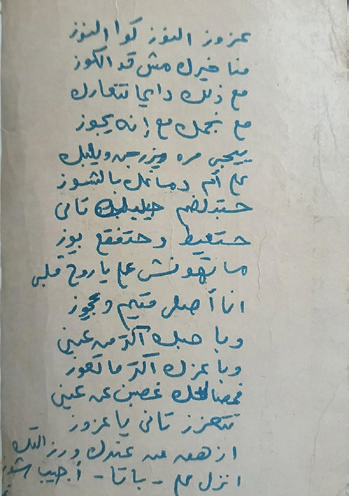 عزوز النوز كوا النوز
مناخيرك مش قد الكوز
مع ذلك دايما تتعارك
مع نجمك مع إنه يجوز
ييجى مره ويليك
على أم دماغك بالشوز
حتبلضم تانى
حتعيط وحتفقع بوز
ما تهونش على يا روح قلبى
انا أصلى قتيم وعجوز
وبا حبك أكتر من عينى
وبا عزك أكتر ما تعوز
فحصالحك غصبن عن عينى
تتعزز تانى يا عزوز
ازهق من عندك ورز التك
انزل على - باتا - أجيب شوز